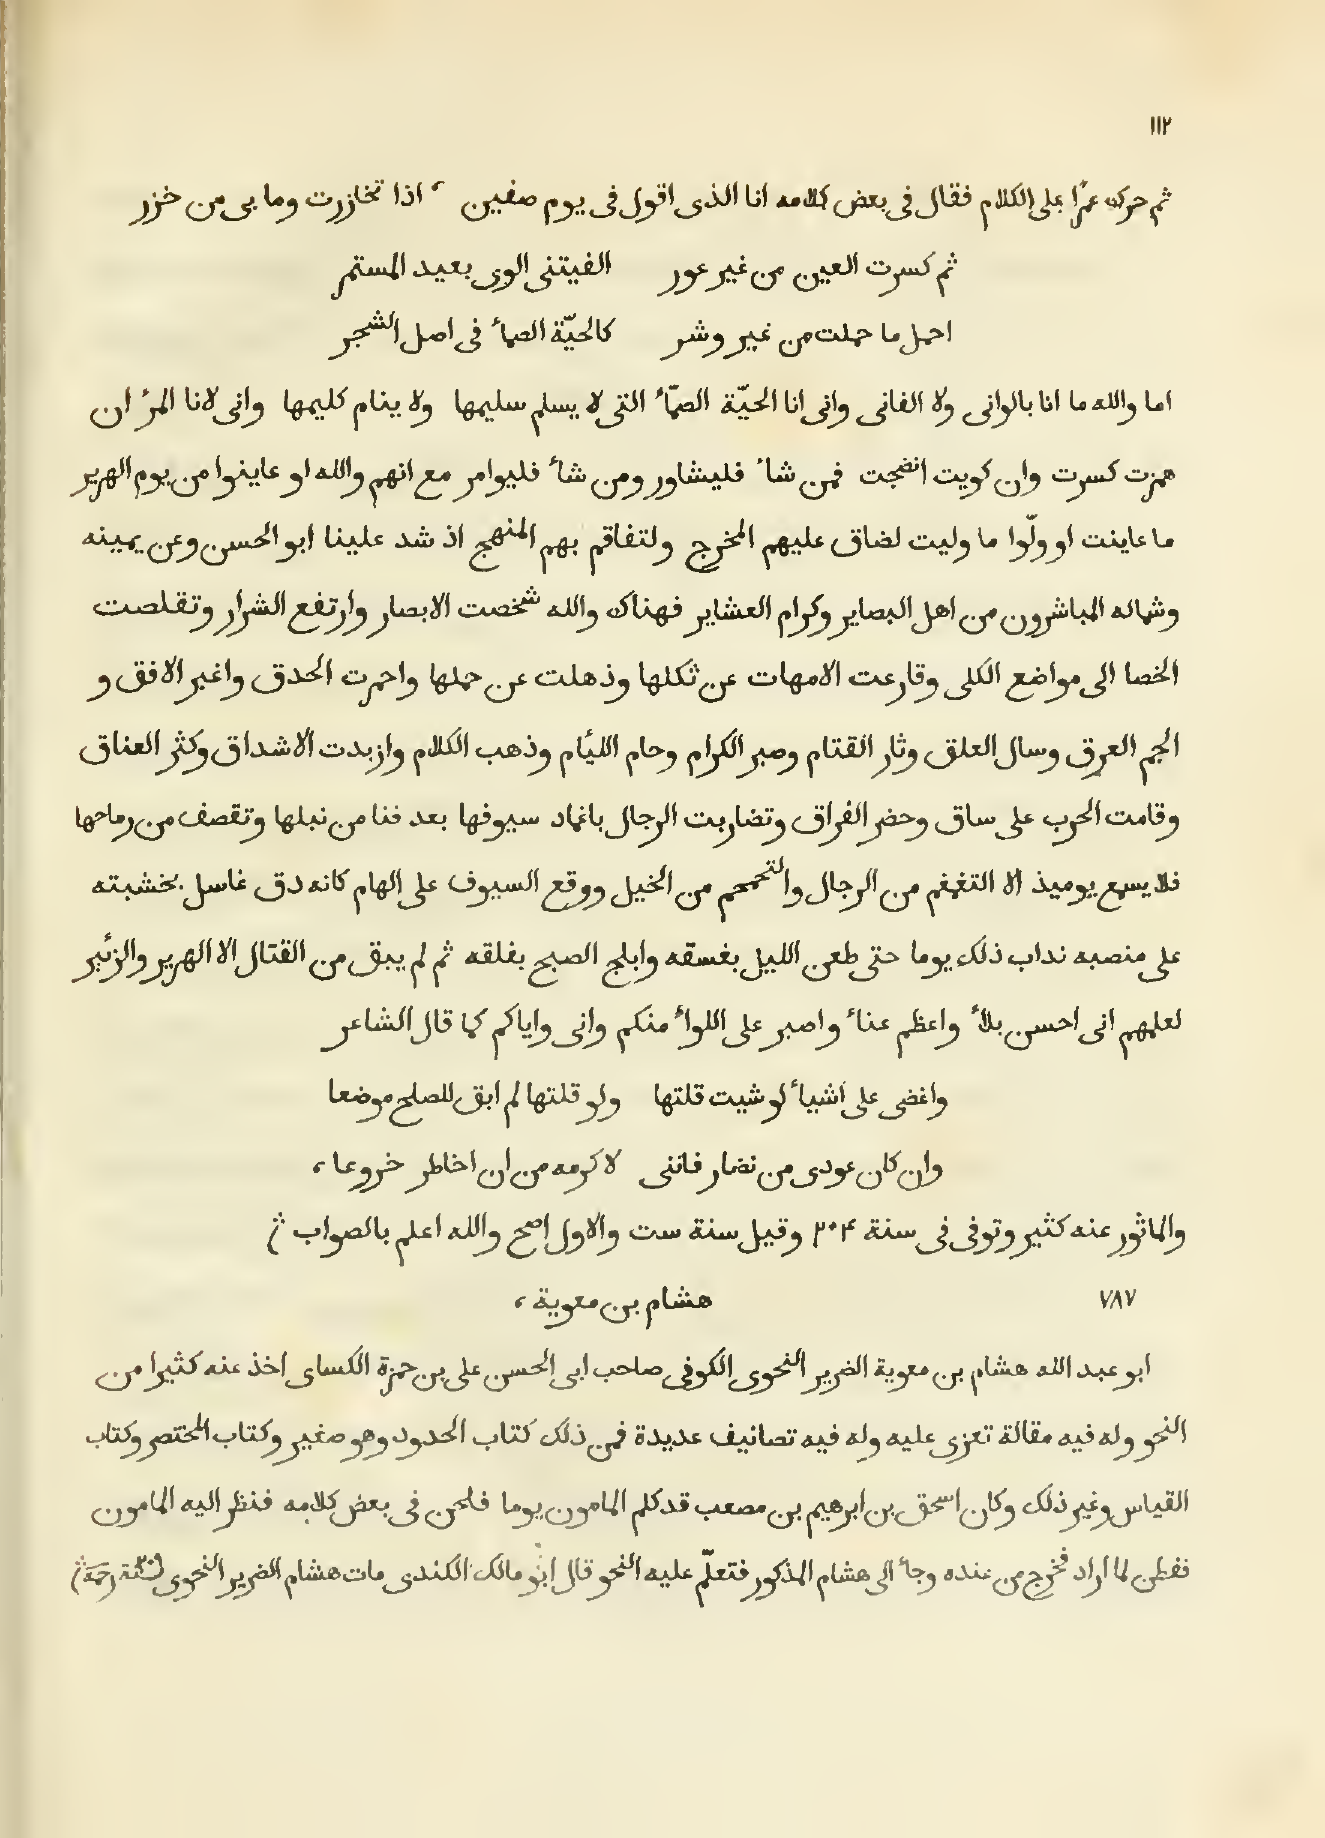 ١١٢
ثم حركت عمرًا على الكلام فقال فى بعض كلامه انا الذى اقول فى يوم صفين ، اذا تخازرت وما بى من خزر
ثم كسرت العين من غير عور الفيتنى الوى بعيد المستمر
احمل ما حملت من خير وشر كالحيّة الصمأ فى اصل الشجر
اما والله ما انا بالوانى ولا الفانى وانى انا الحيّة الصمّأ التى لا يسلم سليمها ولا ينام كليمها وانى لانا المرء ان
همزت كسرت وان كويت انضجت فمن شأ فليشاور ومن شأ فليوامر مع انهم والله لو عاينوا من يوم الهرير
ما عاينت او ولّوا ما وليت لضاق عليهم المخرج ولتفاقم بهم المنهج اذ شد علينا ابو الحسن وعن يمينه
وشماله المباشرون من اهل البصاير وكرام العشاير فهناك والله شخصت الابصار وارتفع الشرار وتقلصت
الخصا الى مواضع الكلى وقارعت الامهات عن ثكلها وذهلت عن حملها واحمرت الحدق واغبر الافق و
الجم العرق وسال العلق وثار القتام وصبر الكرام وحام الليام وذهب الكلام وازبدت الاشداق وكثر العناق
وقامت الحرب على ساق وحضر الفراق وتضاربت الرجال باغماد سيوفها بعد فنا من نبلها وتقصف من رماحها
فلا يسمع يوميذ الا التغمغم من الرجال والتحمحم من الخيل ووقع السيوف على الهام كانه دق غاسل بخشبته
على منصبه نداب ذلك يوما حتى طعن الليل بغسقه وابلج الصبح بفلقه ثم لم يبق من القتال الا الهرير والزئير
لعلمهم انى احسن بلأ واعظم عنأ واصبر على اللوأ منكم وانى واياكم كما قال الشاعر
واغضى على اشيأ لو شيت قلتها ولو قلتها لم ابق للصلح موضعا
وان كان عودى من نضار فاننى لاكرمه من ان اخاطر خروعا ،
والماثور عنه كثير وتوفى فى سنة ٢٠۴ وقيل سنة ست والاول اصح والله اعلم بالصواب
٧٨٧ هشام بن معوية ،
ابو عبد الله هشام بن معوية الضرير النحوى الكوفى صاحب ابى الحسن على بن حمزة الكساى اخذ عنه كثيرا من
النحو وله فيه مقالة تعزى عليه وله فيه تصانيف عديدة فمن ذلك كتاب الحدود وهو صغير وكتاب المختصر وكتاب
القياس وغير ذلك وكان اسحق بن ابرهيم بن مصعب قد كلم المامون يوما فلحن فى بعض كلامه فنظر اليه المامون
ففطن لما اراد فخرج من عنده وجأ الى هشام المذكور فتعلّم عليه النحو قال ابو مالك الكندى مات هشام الضرير النحوى